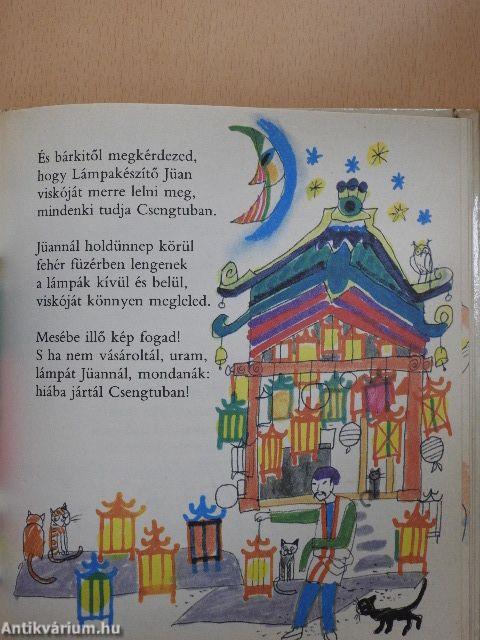 És bárkitől megkérdezed,
hogy Lámpakészítő Jüan
viskóját merre lelni meg,
mindenki tudja Csengtuban.
Jüannál holdünnep körül
fehér füzérben lengenek
a lámpák kívül és belül,
viskóját könnyen megleled.
Mesébe illő kép fogad!
S ha nem vásároltál, uram,
lámpát Jüannál, mondanák:
hiába jártál Csengtuban!
Antikvárium.hu